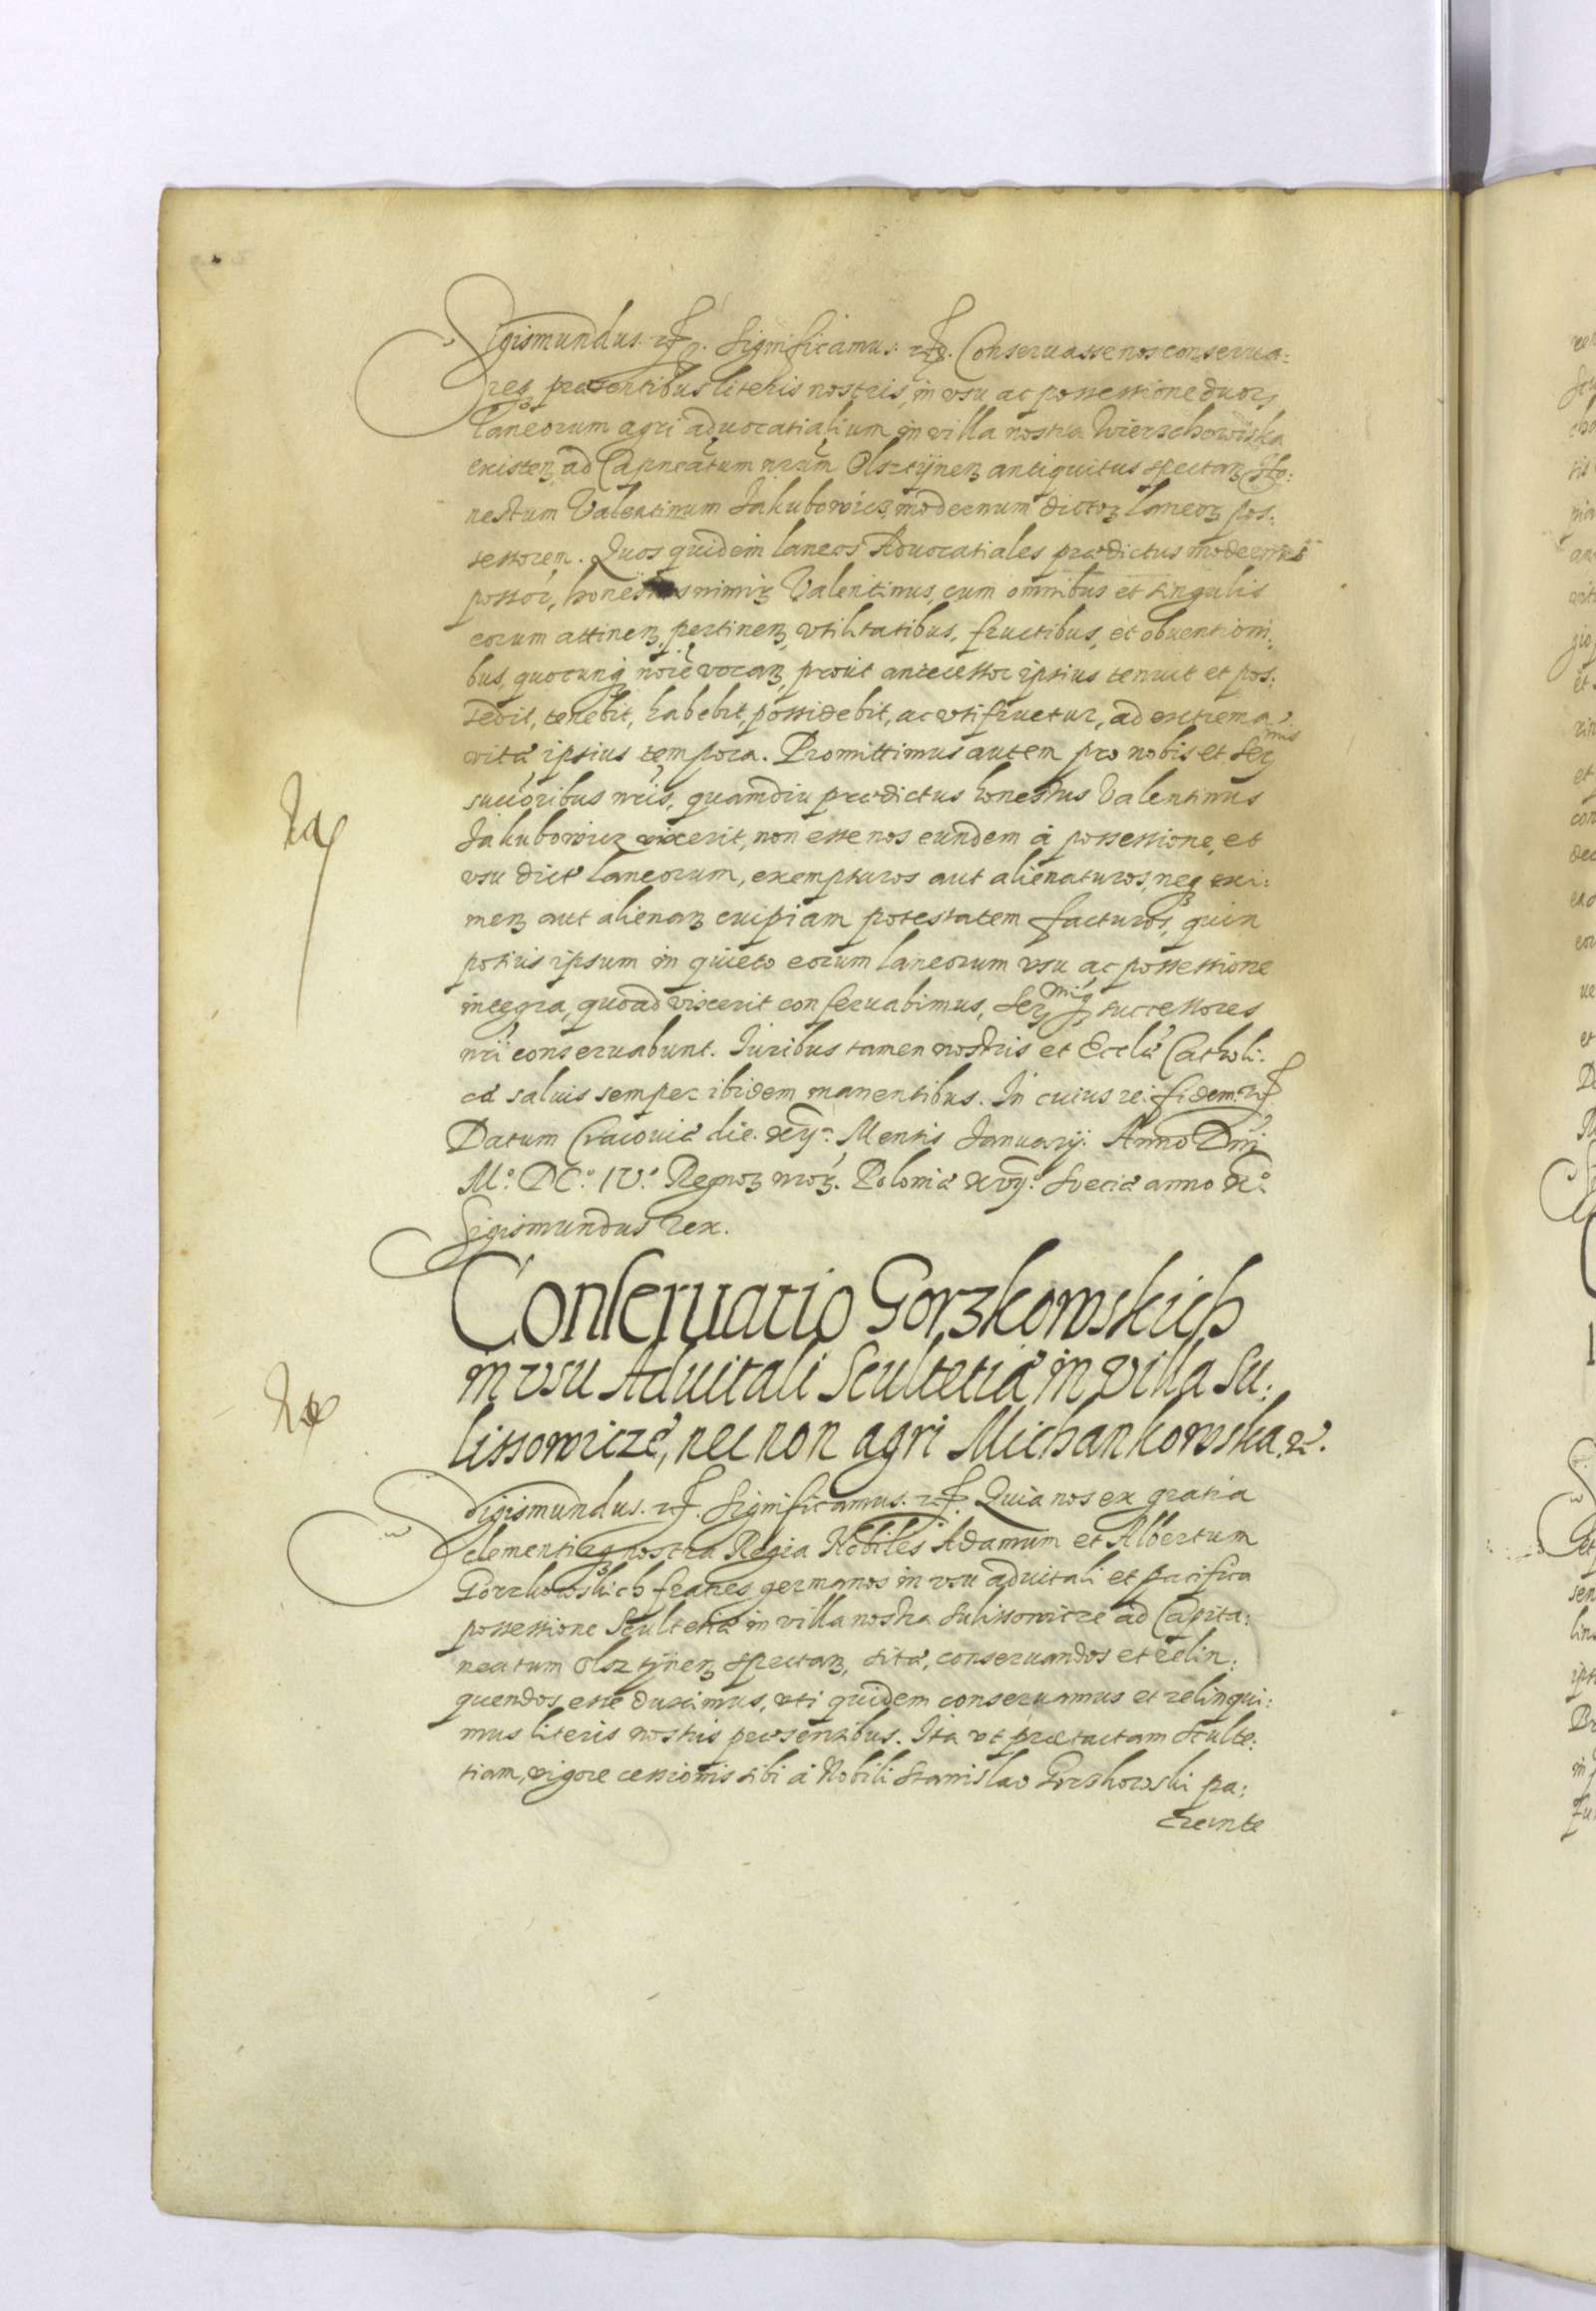 Sigismundus. etc. Significamus. etc. Conseruasse nos conserua:
req₃ præsentibus literis nostris, in vsu ac possessione duorꝫ
laneorum agri aduocatialium in villa nostra Wierzchowiska
existenꝫ, ad Capneatum nrum Olsztÿnenꝫ antiquitus spectanꝫ, Ho:
nestum Valentinum Jakubowicz, modernum dictoꝫ laneoꝫ pos:
sessorem. Quos quidem laneos Aduocatiales prædictus modernus
possor, honestus nimirꝫ Valentinus, cum omnibus et singulis
eorum attinenꝫ, pertinenꝫ, vtilitatibus, fructibus, et obuentioni:
bus, quocunq₃ noie vocanꝫ, prout antecessor ipsius tenuit et pos:
sedit, tenebit, habebit, possidebit, ac vtifruetur, ad extrema
vitæ ipsius tempora. Promittimus autem pro nobis et Serᵐⁱˢ
succoribus nris, quamdiu prædictus honestus Valentinus
Jakubowicz vixerit, non esse nos eundem à possessione, et
vsu dict laneorum, exempturos aut alienaturos, neq₃ exi:
menꝫ aut alienanꝫ cuipiam potestatem facturos, quin
potius ipsum in quieto eorum laneorum vsu ac possessione
integra, quoad vixerit conseruabimus, Serᵐⁱq₃ successores
nri conseruabunt. Iuribus tamen nostris et Ecclæ Catholi:
cæ saluis semper ibidem manentibus. In cuius rei fidem. etc.
Datum Cracouiæ die. xij. Mensis Januarij. Anno Dni
M.º DC.º IV.º Regnoꝫ nroꝫ. Poloniæ xvij.º Sueciæ anno xº.
Sigismundus Rex.
Conseruatio Gorzkowskich
in vsu Aduitali Scultetiæ in villa Su:
lissowicze, nec non agri Michankowska. etc.
Sigismundus. etc. Significamus. etc. Quia nos ex gratia
clementiaq₃ nostra Regia Nobiles Adamum et Albertum
Gorzkowskich fratres germanos in vsu aduitali et pacifica
possessione Scultetiæ in villa nostra Sulissowicze ad Capita:
neatum Olsztÿnenꝫ spectanꝫ, sitæ, conseruandos et relin:
quendos esse duximus, vti quidem conseruamus et relinqui:
mus literis nostris præsentibus. Ita vt prætactam Sculte:
tiam, vigore cessionis sibi à Nobili Stanislao Gorzkowski pa:
rente